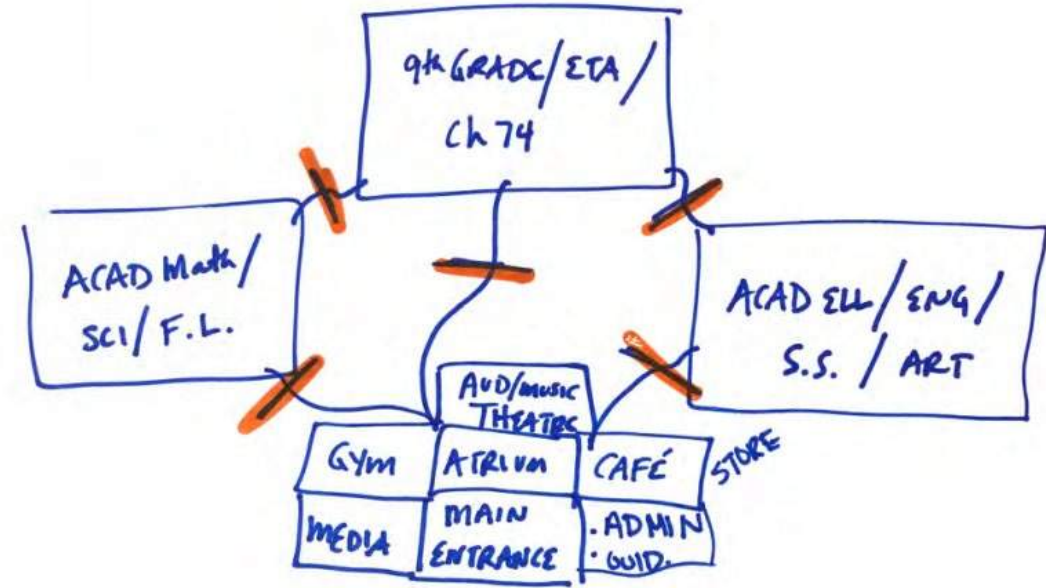 9th GRADE/ETA/
Ch 74
ACAD Math/
SCI/F.L.
ACAD ELL/ENG/
S.S./ART
AUD/MUSIC
THEATRE
GYM
ATRIUM
CAFÉ
STORE
MEDIA
MAIN
ENTRANCE
· ADMIN
· GUID.